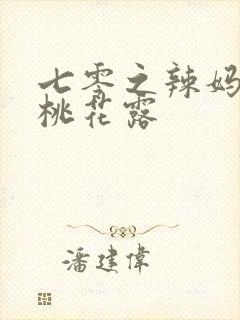 七零之辣妈
桃花露
潘建偉